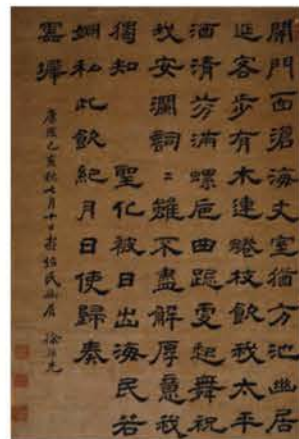 開門面滄海丈室猶方池幽居
延客步有木連蜷枝飲我太平
酒清芬滿螺卮曲跽更起舞祝
我安瀾詞〻雖不盡解厚意我
獨知 聖化被日出海民若
私此飲紀月日使歸奏
雲墀
康熙己亥秋七月十日於紹氏幽居 徐葆光